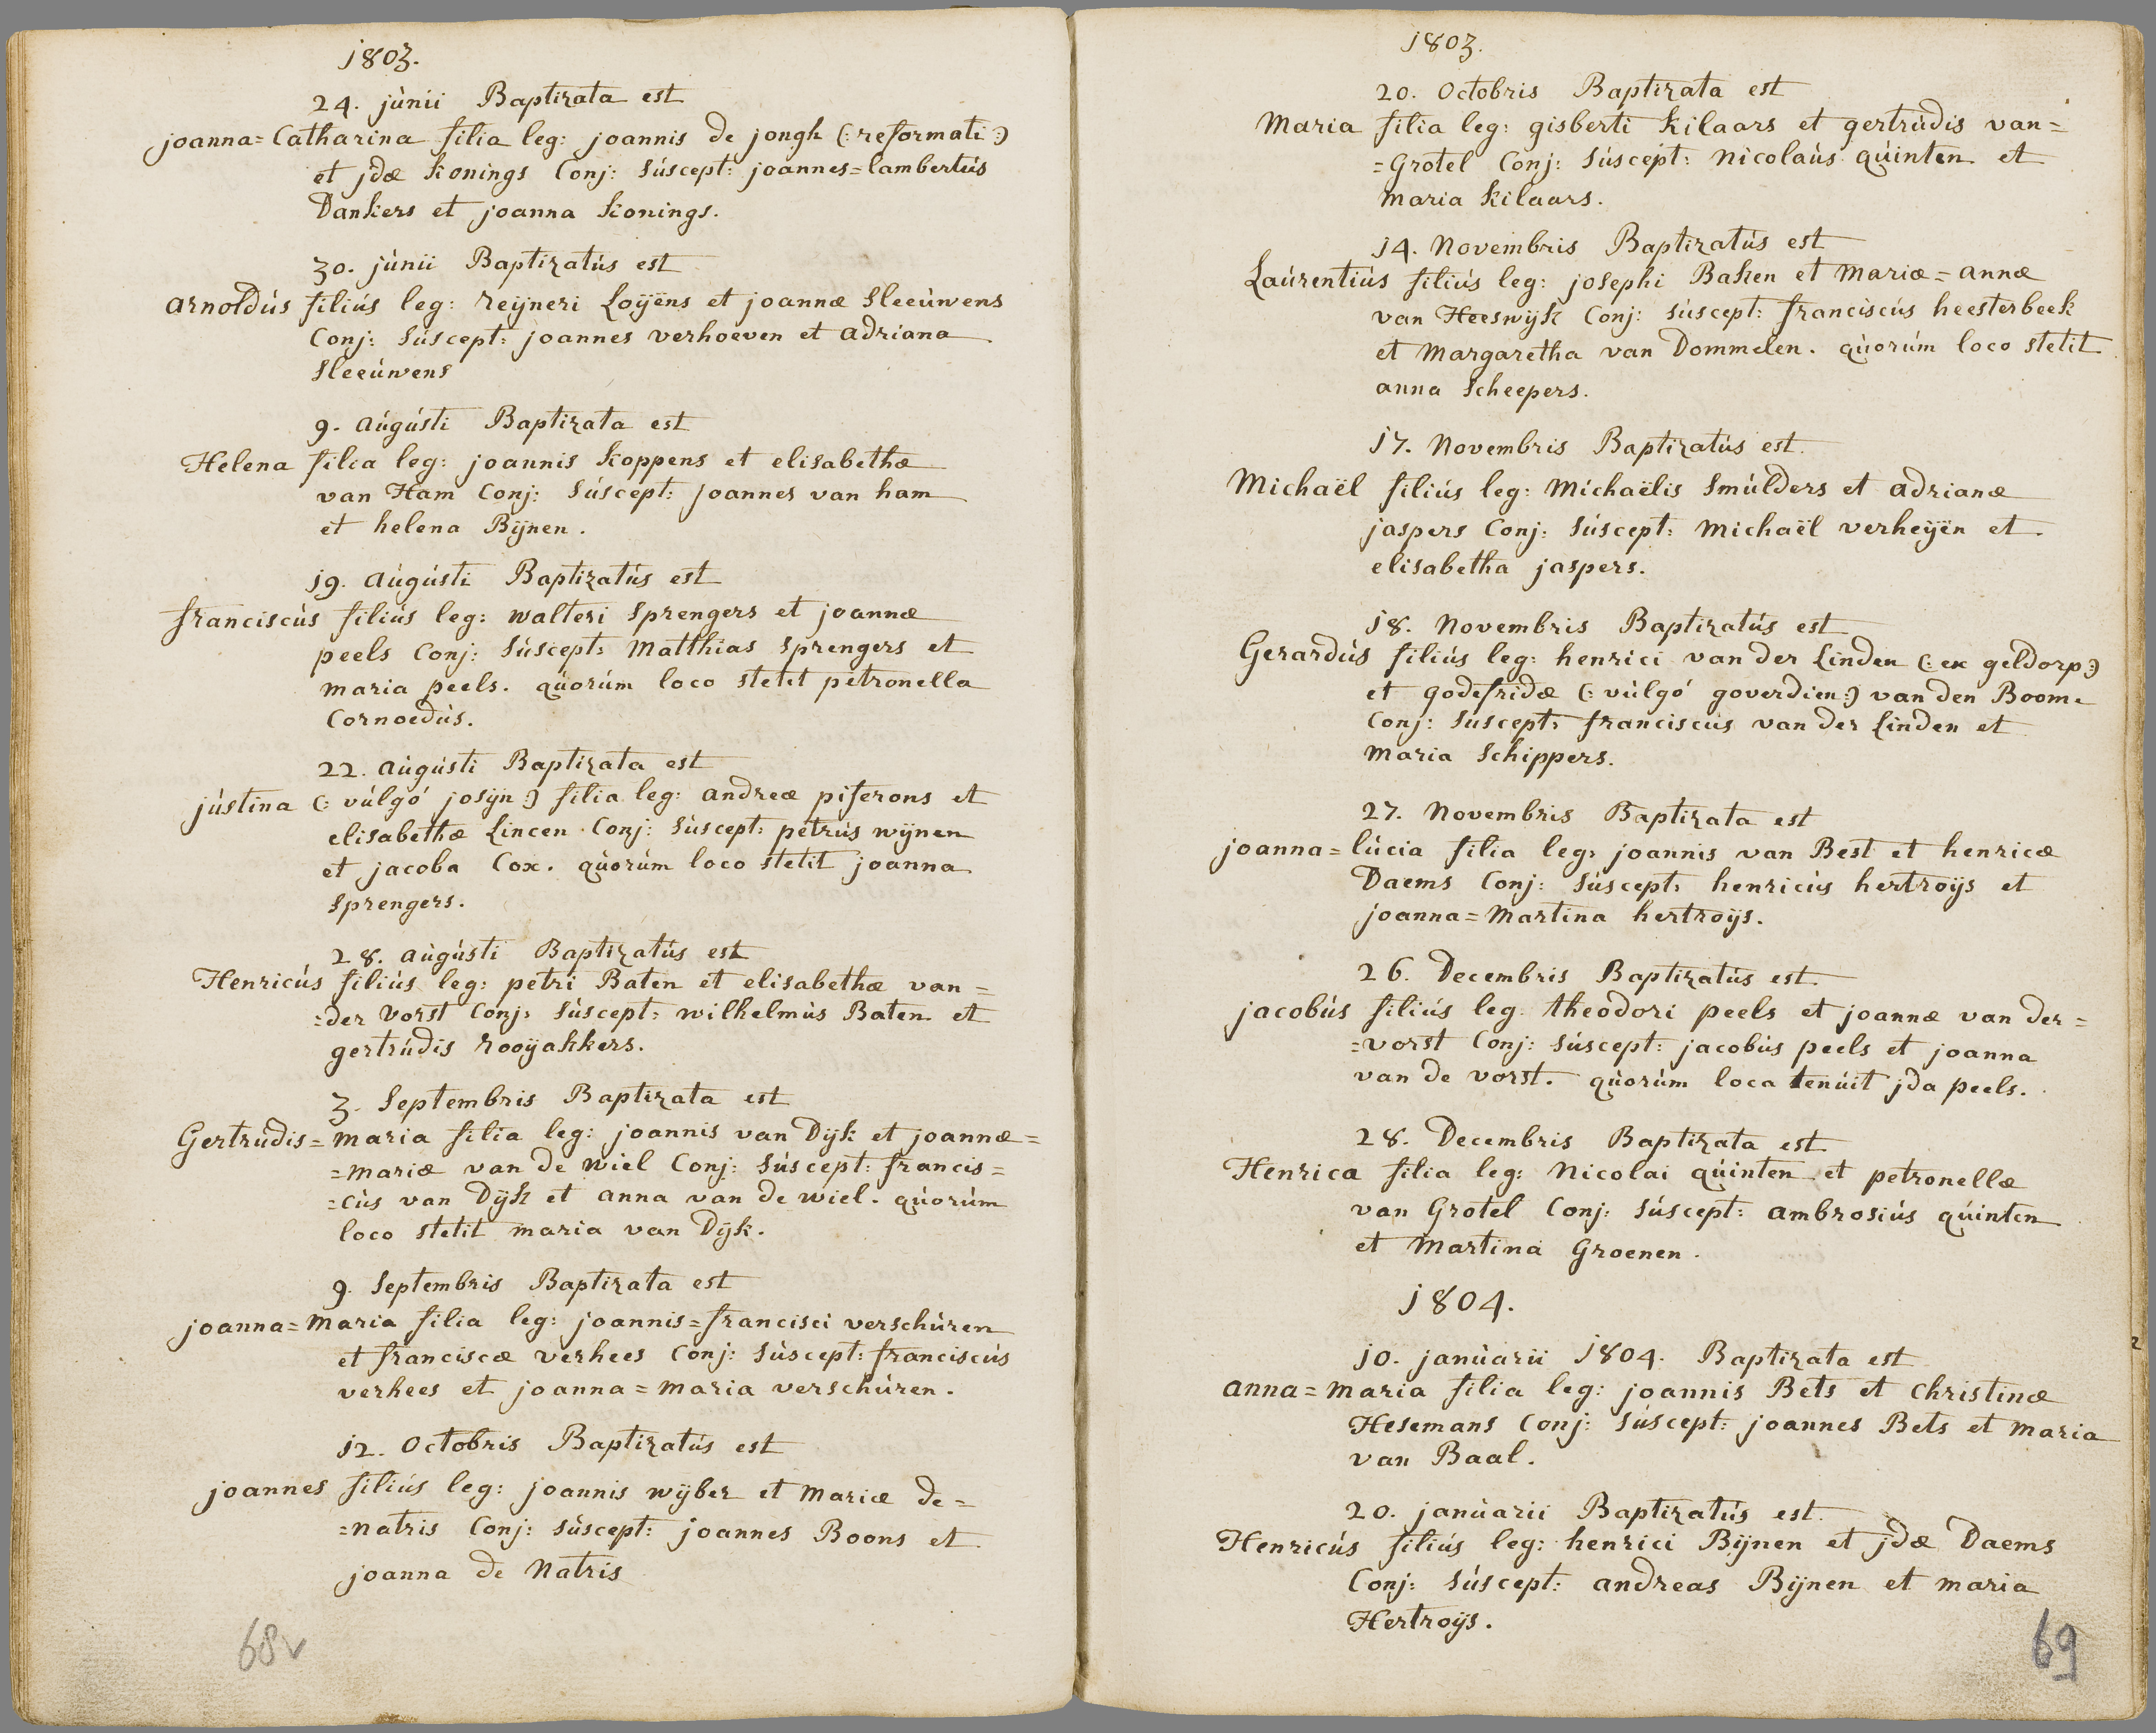 1803.
24. júnii Baptizata est
joanna=Catharina filia leg: joannis de jongh (: reformati :)
et jdæ Konings Conj: Súscept: joannes=lambertús
Dankers et joanna Konings.
30. júnii Baptizatús est
arnoldús filiús leg: reÿneri Loÿens et joannæ Sleeúwens
Conj: Súscept: joannes verhoeven et adriana
Sleeúwens
9. aúgústi Baptizata est
Helena filia leg: joannis Koppens et elisabethæ
van Ham Conj: Súscept: joannes van ham
et helena Bÿnen.
19. aúgústi Baptizatús est
franciscús filiús leg: walteri Sprengers et joannæ
peels Conj: Súscept: Matthias Sprengers et
maria peels. qúorúm loco stetit petronella
Cornoedús.
22. aúgústi Baptizata est
jústina (: vúlgó josÿn :) filia leg: andreæ piferons et
elisabethæ Lincen Conj: Súscept: petrús wÿnen
et jacoba Cox. qúorúm loco stetit joanna
Sprengers.
28. aúgústi Baptizatús est
Henricús filiús leg: petri Baten et elisabethæ van=
=der Vorst Conj: Súscept: wilhelmús Baten et
gertrúdis rooÿakkers.
3. Septembris Baptizata est
Gertrudis=maria filia leg: joannis van Dÿk et joannæ=
=mariæ van de wiel Conj: Súscept: francis=
=cús van Dÿk et anna van de wiel. qúorúm
loco stetit maria van Dÿk.
9. Septembris Baptizata est
joanna=Maria filia leg: joannis=francisci verschúren
et franciscæ verhees Conj: Súscept: franciscús
verhees et joanna=maria verschúren.
12. Octobris Baptizatús est
joannes filiús leg: joannis wÿber et Mariæ de=
=natris Conj: Súscept: joannes Boons et
joanna de Natris
68v
1803.
20. Octobris Baptizata est
Maria filia leg: gisberti Kilaars et gertrúdis van=
=Grotel Conj: Súscept: Nicolaús qúinten et
Maria Kilaars.
14. Novembris Baptizatús est
Laúrentiús filiús leg: josephi Baken et Mariæ=annæ
van Heeswÿk Conj: Súscept: franciscús heesterbeek
et Margaretha van Dommelen. qúorúm loco stetit
anna Scheepers.
17. Novembris Baptizatús est
Michaël filiús leg: Michaëlis Smúlders et adrianæ
jaspers Conj: Súscept: Michaël verheÿen et
elisabetha jaspers.
18. Novembris Baptizatús est
Gerardús filiús leg: henrici van der Linden (: ex geldorp :)
et godefridæ (: vúlgó goverdien :) van den Boom.
Conj: Suscept: franciscús van der Linden et
Maria Schippers.
27. Novembris Baptizata est
joanna=lúcia filia leg: joannis van Best et henricæ
Daems Conj: Súscept: henricús hertroÿs et
joanna=Martina hertroÿs.
26. Decembris Baptizatús est
jacobús filiús leg: theodori peels et joannæ van der=
=vorst Conj: Súscept: jacobús peels et joanna
van de vorst. qúorúm loca tenúit jda peels.
28. Decembris Baptizata est
Henrica filia leg: Nicolai qúinten et petronellæ
van Grotel Conj: Súscept: ambrosiús qúinten
et Martina Groenen.
1804.
10. janúarii 1804. Baptizata est
anna=maria filia leg: joannis Bets et Christinæ
Hesemans Conj: Súscept: joannes Bets et Maria
van Baal.
20. janúarii Baptizatús est
Henricús filiús leg: henrici Bÿnen et jdæ Daems
Conj: Súscept: andreas Bÿnen et maria
Hertroÿs.
69